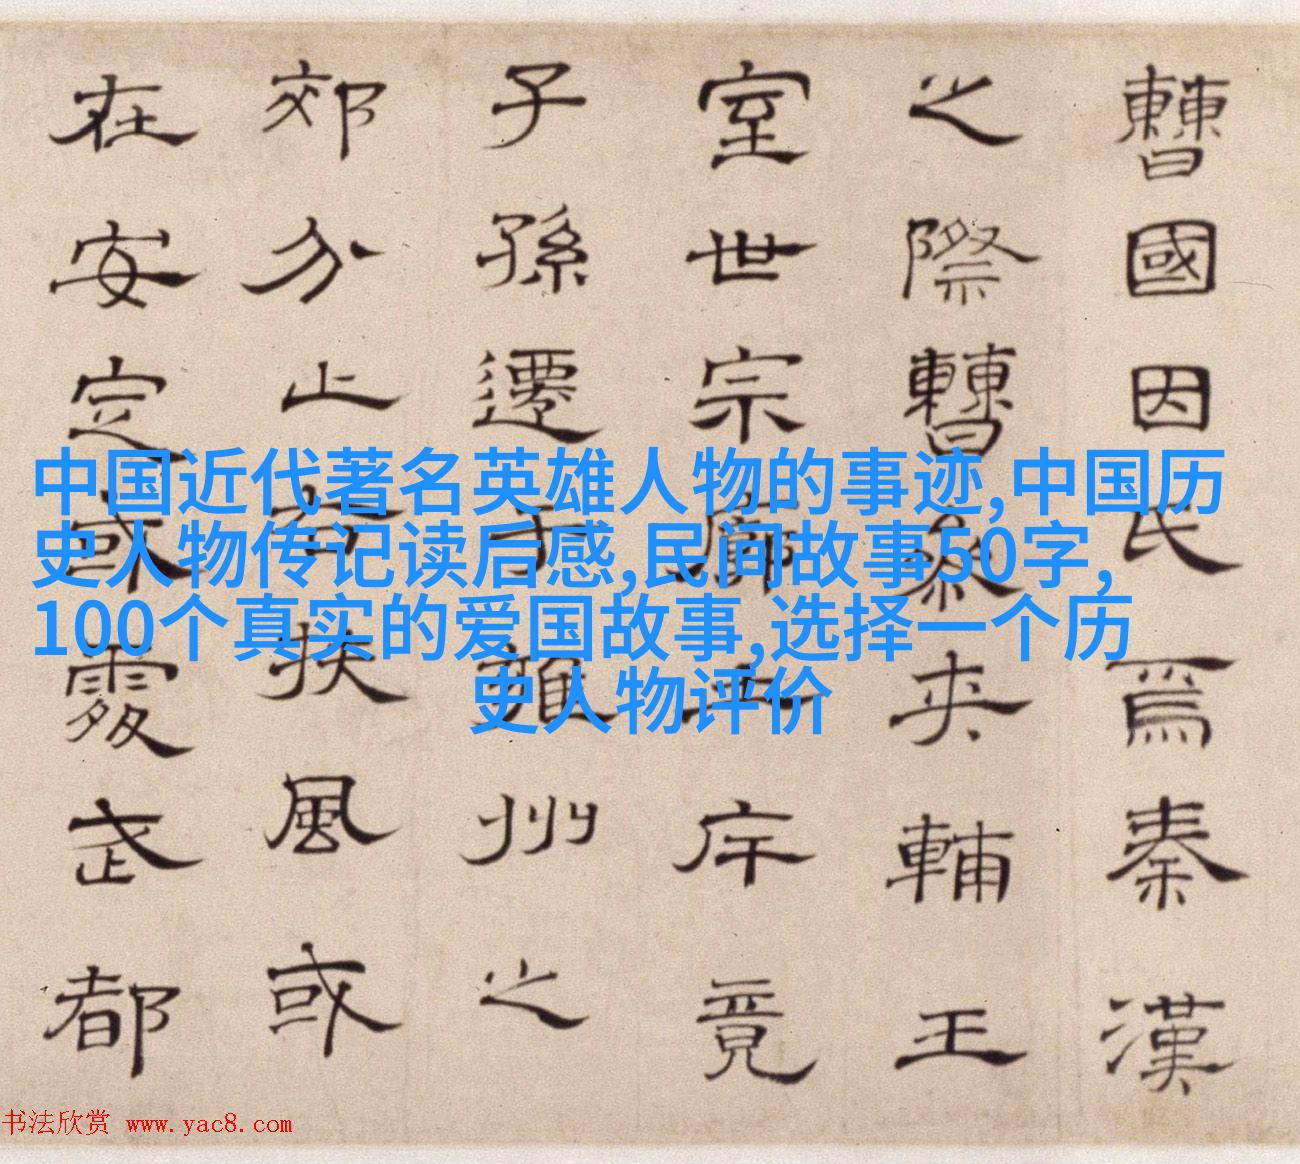 曹國因氏焉秦漢
之際曹參夾輔王
室世宗廓土斥竟
子孫遷于雍州之
郊分止右扶風或
在安定或處武都
中国近代著名英雄人物的事迹,中国历
史人物传记读后感,民间故事50字,
100个真实的爱国故事,选择一个历
史人物评价
书法欣赏 www.yac8.com